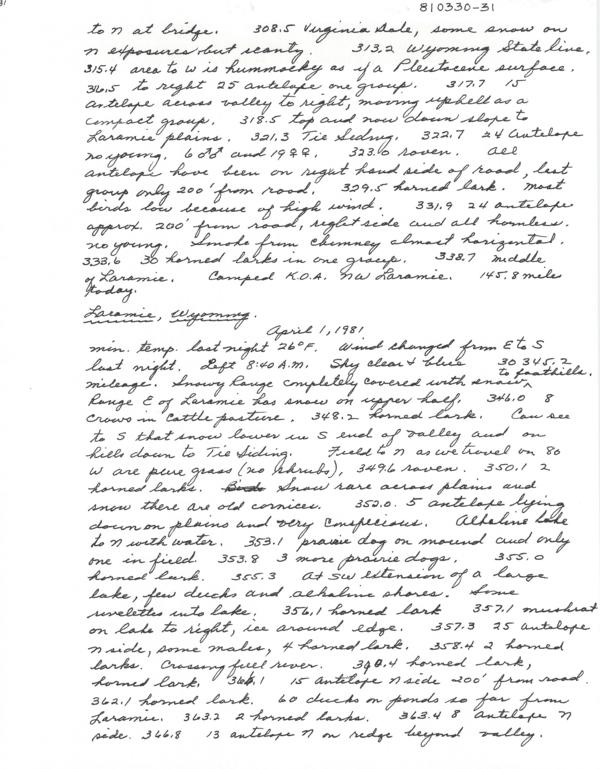 810330-31
to N at bridge. 308.5 Virginia Dale, some snow on
N exposures but scanty. 313.2 Wyoming State line.
315.4 area to W is hummocky as if a Pleistocene surface.
316.5 to right 25 antelope one group. 317.7 15
antelope across valley to right, moving uphill as a
compact group. 318.5 top and now down slope to
Laramie plains. 321.3 Tie Siding. 322.7 24 antelope
no young. 6 ♂♂ and 19 ♀♀. 323.0 raven. All
antelope have been on right hand side of road, last
group only 200' from road. 329.5 horned lark. Most
birds low because of high wind. 331.9 24 antelope
approx. 200' from road, right side and all hornless.
no young. Smoke from chimney almost horizontal.
333.6 30 horned larks in one group. 338.7 middle
of Laramie. Camped K.O.A. NW Laramie. 145.8 miles
today.
Laramie, Wyoming.
April 1, 1981
min. temp. last night 26°F. Wind changed from E to S
last night. Left 8:40 A.M. Sky clear & blue 30 345.2
mileage. Snowy Range completely covered with snow to foothills.
Range E of Laramie has snow on upper half. 346.0 8
crows in cattle pasture. 348.2 horned lark. Can see
to S that snow lower in S end of valley and on
hills down to Tie Siding. Field to N as we travel on 80
W are pure grass (no shrubs), 349.6 raven. 350.1 2
horned larks. Snow rare across plains and
snow there are old cornices. 352.0. 5 antelope lying
down on plains and very conspicious. Alkaline lake
to N with water. 353.1 prairie dog on mound and only
one in field. 353.8 3 more prairie dogs. 355.0
horned lark. 355.3 At SW extension of a large
lake, few ducks and alkaline shores. Some
rivelettes into lake. 356.1 horned lark 357.1 muskrat
on lake to right, ice around edge. 357.3 25 antelope
N side, some males, 4 horned lark. 358.4 2 horned
larks. Crossing fuel river. horned lark,
horned lark. 15 antelope N side 200' from road.
362.1 horned lark. 60 ducks on ponds so far from
Laramie. 363.2 2 horned larks. 363.4 8 antelope N
side. 366.8 13 antelope N on ridge beyond valley.